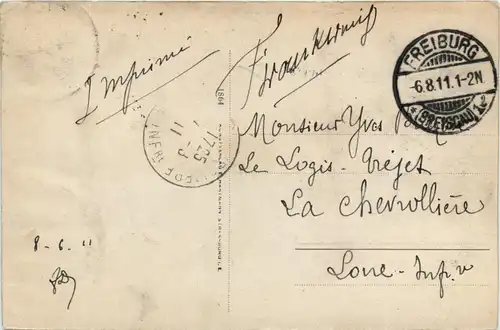 Imprimé
Frankreich
FREIBURG
-6.8.11.1-2N
*(BREISGAU)
1864
17 25
INFRE
Monsieur Yves
Le Logis-Tréjet
La Chevrollière
Loire-Infre
8-6.11